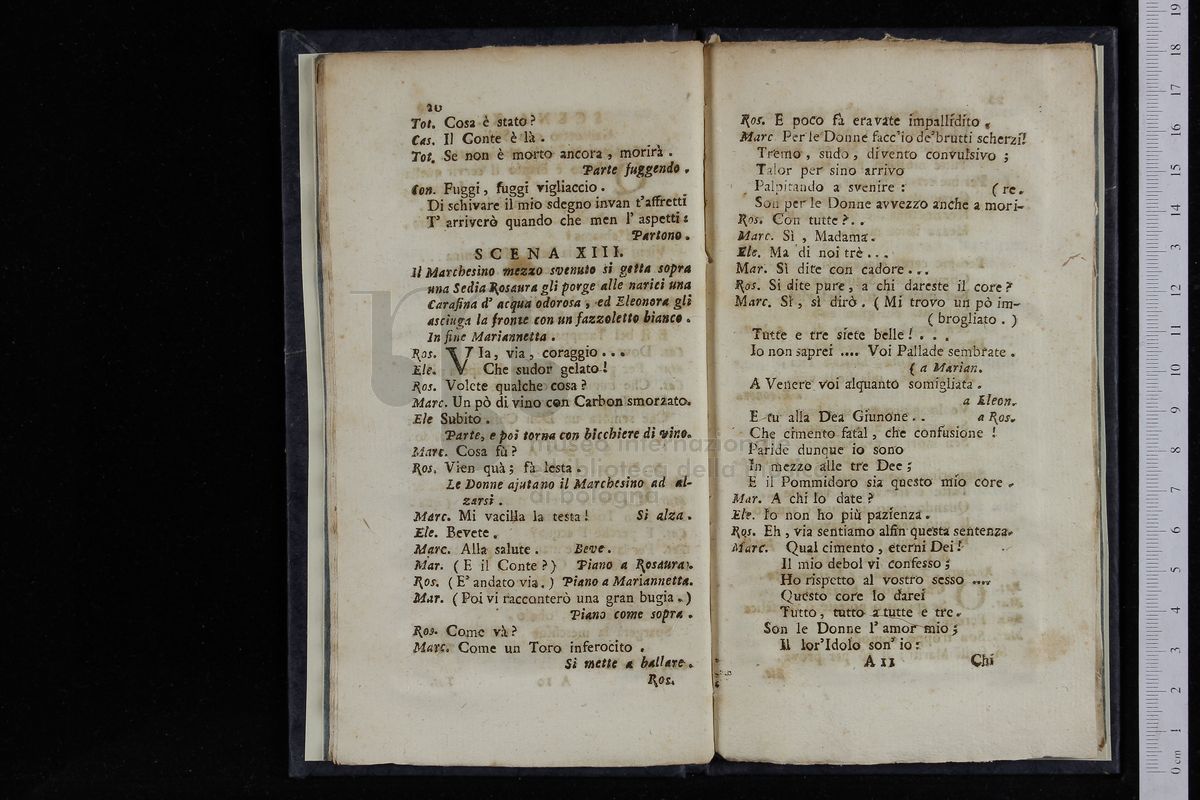 20
Tot. Cosa è stato?
Cas. Il Conte è là.
Tot. Se non è morto ancora, morirà.
Parte fuggendo.
Con. Fuggi, fuggi vigliaccio.
Di schivare il mio sdegno invan t'affretti
T' arriverò quando che men l' aspetti:
Partono.
SCENA XIII.
Il Marchesino mezzo svenuto si getta sopra
una Sedia Rosaura gli porge alle narici una
Carafina d' acqua odorosa, ed Eleonora gli
asciuga la fronte con un fazzoletto bianco.
In fine Mariannetta.
Ros. VIa, via, coraggio...
Ele. Che sudor gelato!
Ros. Volete qualche cosa?
Marc. Un pò di vino con Carbon smorzato.
Ele Subito.
Parte, e poi torna con bicchiere di vino.
Marc. Cosa fù?
Ros. Vien quà; fà lesta.
Le Donne ajutano il Marchesino ad al-
zarsi.
Marc. Mi vacilla la testa! Si alza.
Ele. Bevete.
Marc. Alla salute. Beve.
Mar. (E il Conte?) Piano a Rosaura.
Ros. (E' andato via.) Piano a Mariannetta.
Mar. (Poi vi racconterò una gran bugia.)
Piano come sopra.
Ros. Come và?
Marc. Come un Toro inferocito.
Si mette a ballare.
Ros.
Ros. E poco fà eravate impallidito.
Marc Per le Donne facc'io de'brutti scherzi!
Tremo, sudo, divento convulsivo;
Talor per sino arrivo
Palpitando a svenire: (re.
Son per le Donne avvezzo anche a mori-
Ros. Con tutte?..
Marc. Sì, Madama.
Ele. Ma di noi trè...
Mar. Sì dite con cadore...
Ros. Si dite pure, a chi dareste il core?
Marc. Sì, sì dirò. (Mi trovo un pò im-
(brogliato.)
Tutte e tre siete belle!...
Io non saprei .... Voi Pallade sembrate.
(a Marian.
A Venere voi alquanto somigliata.
a Eleon.
E tu alla Dea Giunone.. a Ros.
Che cimento fatal, che confusione!
Paride dunque io sono
In mezzo alle tre Dee;
E il Pommidoro sia questo mio core.
Mar. A chi lo date?
Ele. Io non ho più pazienza.
Ros. Eh, via sentiamo alfin questa sentenza.
Marc. Qual cimento, eterni Dei!
Il mio debol vi confesso;
Ho rispetto al vostro sesso ....
Questo core lo darei
Tutto, tutto a tutte e tre.
Son le Donne l' amor mio;
Il lor'Idolo son' io:
A 11 Chi
museo internazionale
e biblioteca della musica
di bologna
0 cm 1 2 3 4 5 6 7 8 9 10 11 12 13 14 15 16 17 18 19